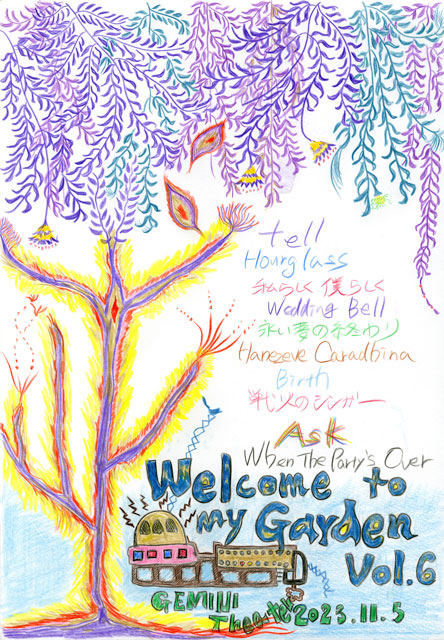 tell
Hourglass
私らしく 僕らしく
Wedding Bell
永い夢の終わり
Harezeve Caradhina
Birth
戦火のシンガー
Ask
When The Party's Over
Welcome to
my Garden
Vol.6
GEMINI
Theater 2023.11.5